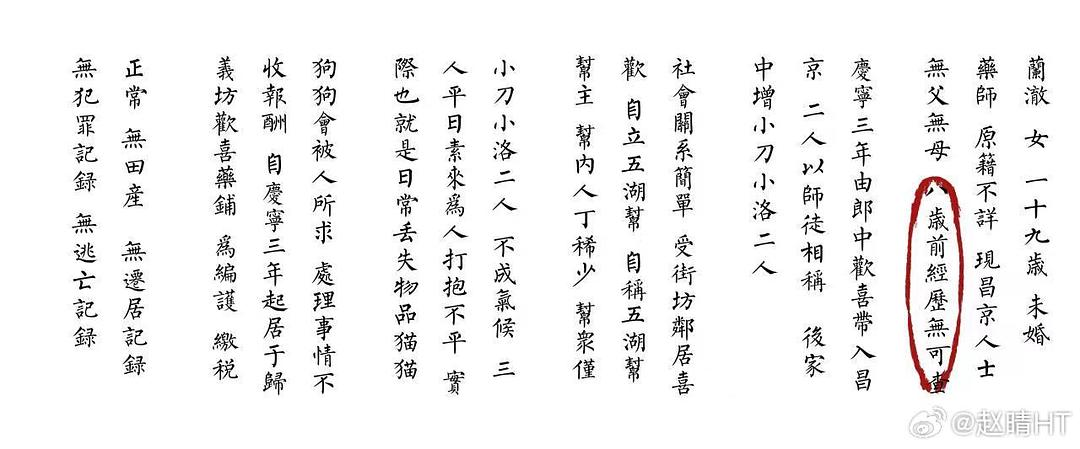 蘭澈 女 一十九歲 未婚
藥師 原籍不詳 現昌京人士
無父無母 八歲前經歷無可查
慶寧三年由郎中歡喜帶入昌
京 二人以師徒相稱 後家
中增小刀小洛二人
社會關系簡單 受街坊鄰居喜
歡 自立五湖幫 自稱五湖幫
幫主 幫內人丁稀少 幫衆僅
小刀小洛二人 不成氣候 三
人平日素來爲人打抱不平 實
際也就是日常丟失物品猫猫
狗狗會被人所求 處理事情不
收報酬 自慶寧三年起居于歸
義坊歡喜藥鋪 爲編護 繳税
正常 無田産 無遷居記録
無犯罪記録 無逃亡記録
@赵晴HT